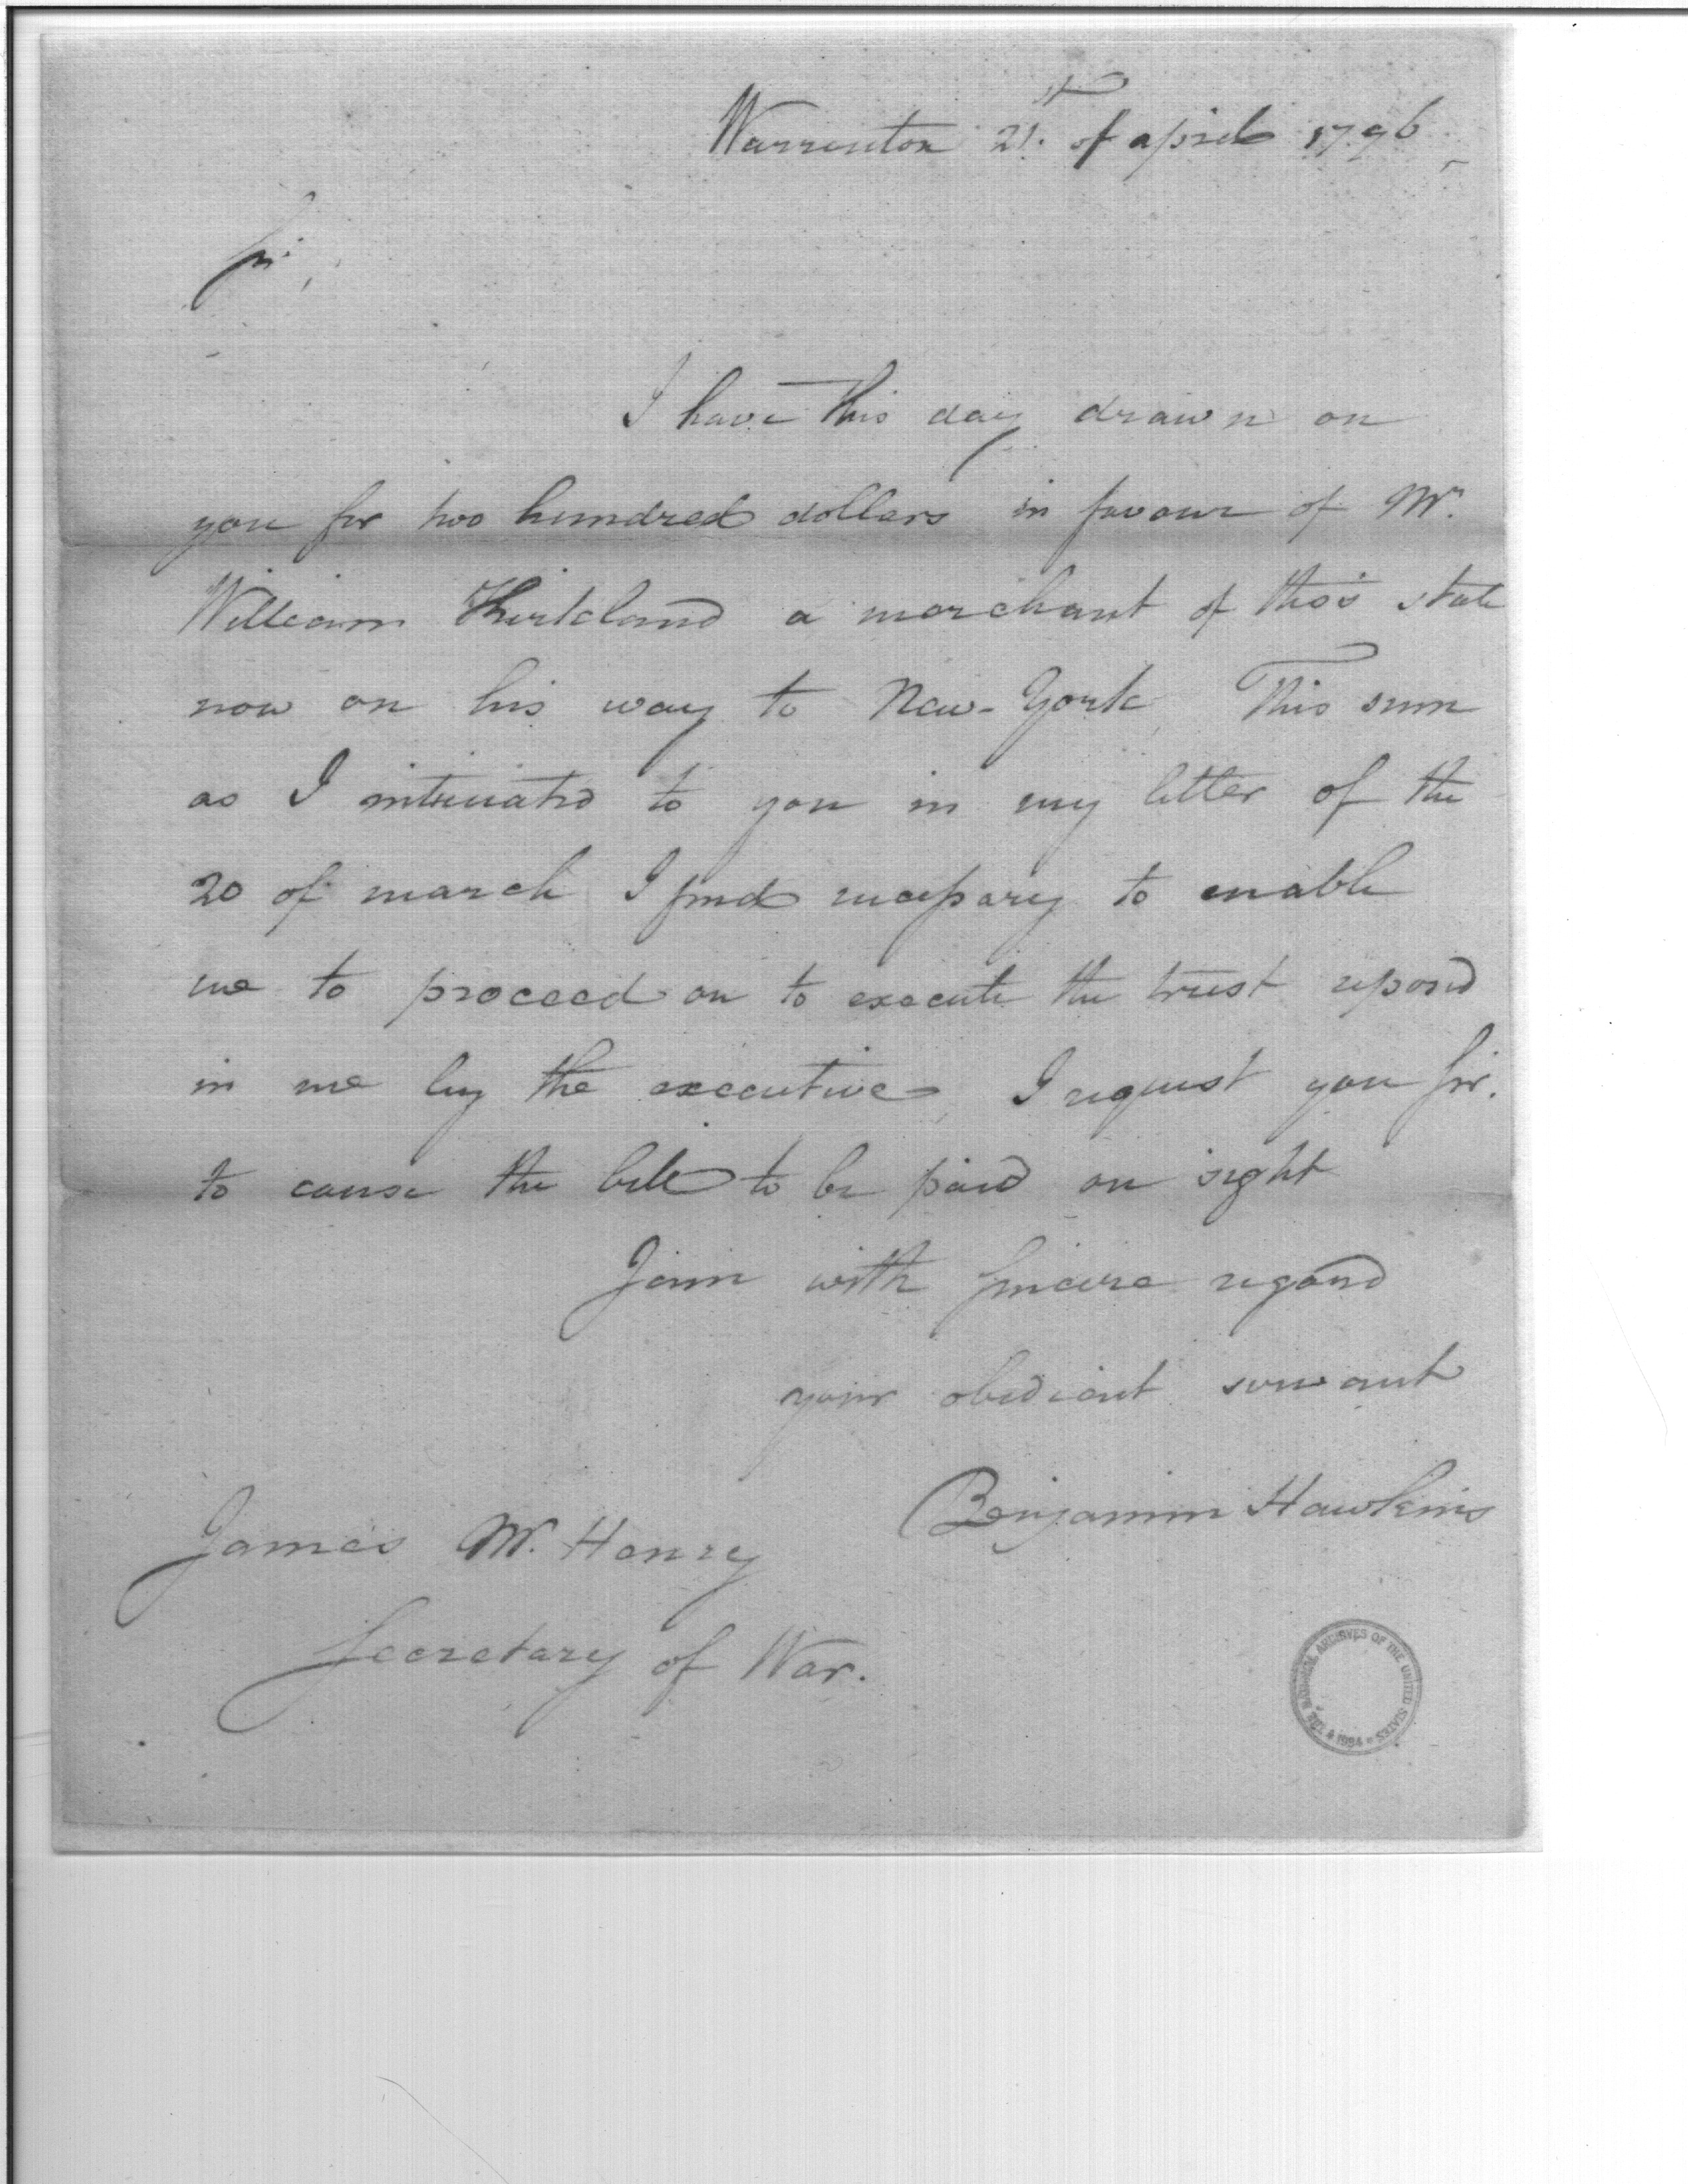 Warrenton 21.st of april 1796
Sir,
I have this day drawn on
you for two hundred dollars in favour of Mr.
William Kirkland a merchant of this state
now on his way to New-York This sum
as I intimated to you in my letter of the
20 of march I find necessary to enable
me to proceed on to execute the trust reposed
in me by the executive I request you Sir.
to cause the bill to be paid on sight
I am with sincere regard
your obedient servant
Benjamin Hawkins
James Mc. Henry
Secretary of War.
THE NATIONAL ARCHIVES OF THE UNITED STATES
1934